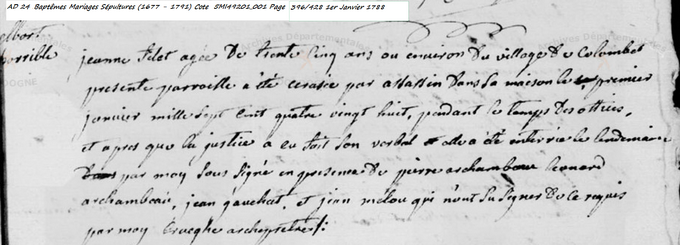 AD 24 Baptêmes Mariages Sépultures (1677 - 1792) Cote 5MI49201_001 Page 396/428 1er Janvier 1788
jeanne filet agée De trente Cinq ans ou environ Du village De Colombet
horrible
presente parroisse a été ecrasée par assassin Dans Sa maison le premier
janvier mille Sept Cent quatre vingt huit, pendant le temps Des offices,
et apres que la justice a eu fait Son verbal elle a été enterrée le lendemain
par moy Sous Signé en presence De pierre archambeau leonard
archambeau, jean gauchat, et jean melou qui n'ont Su Signer De Ce requis
par moy archiprêtre